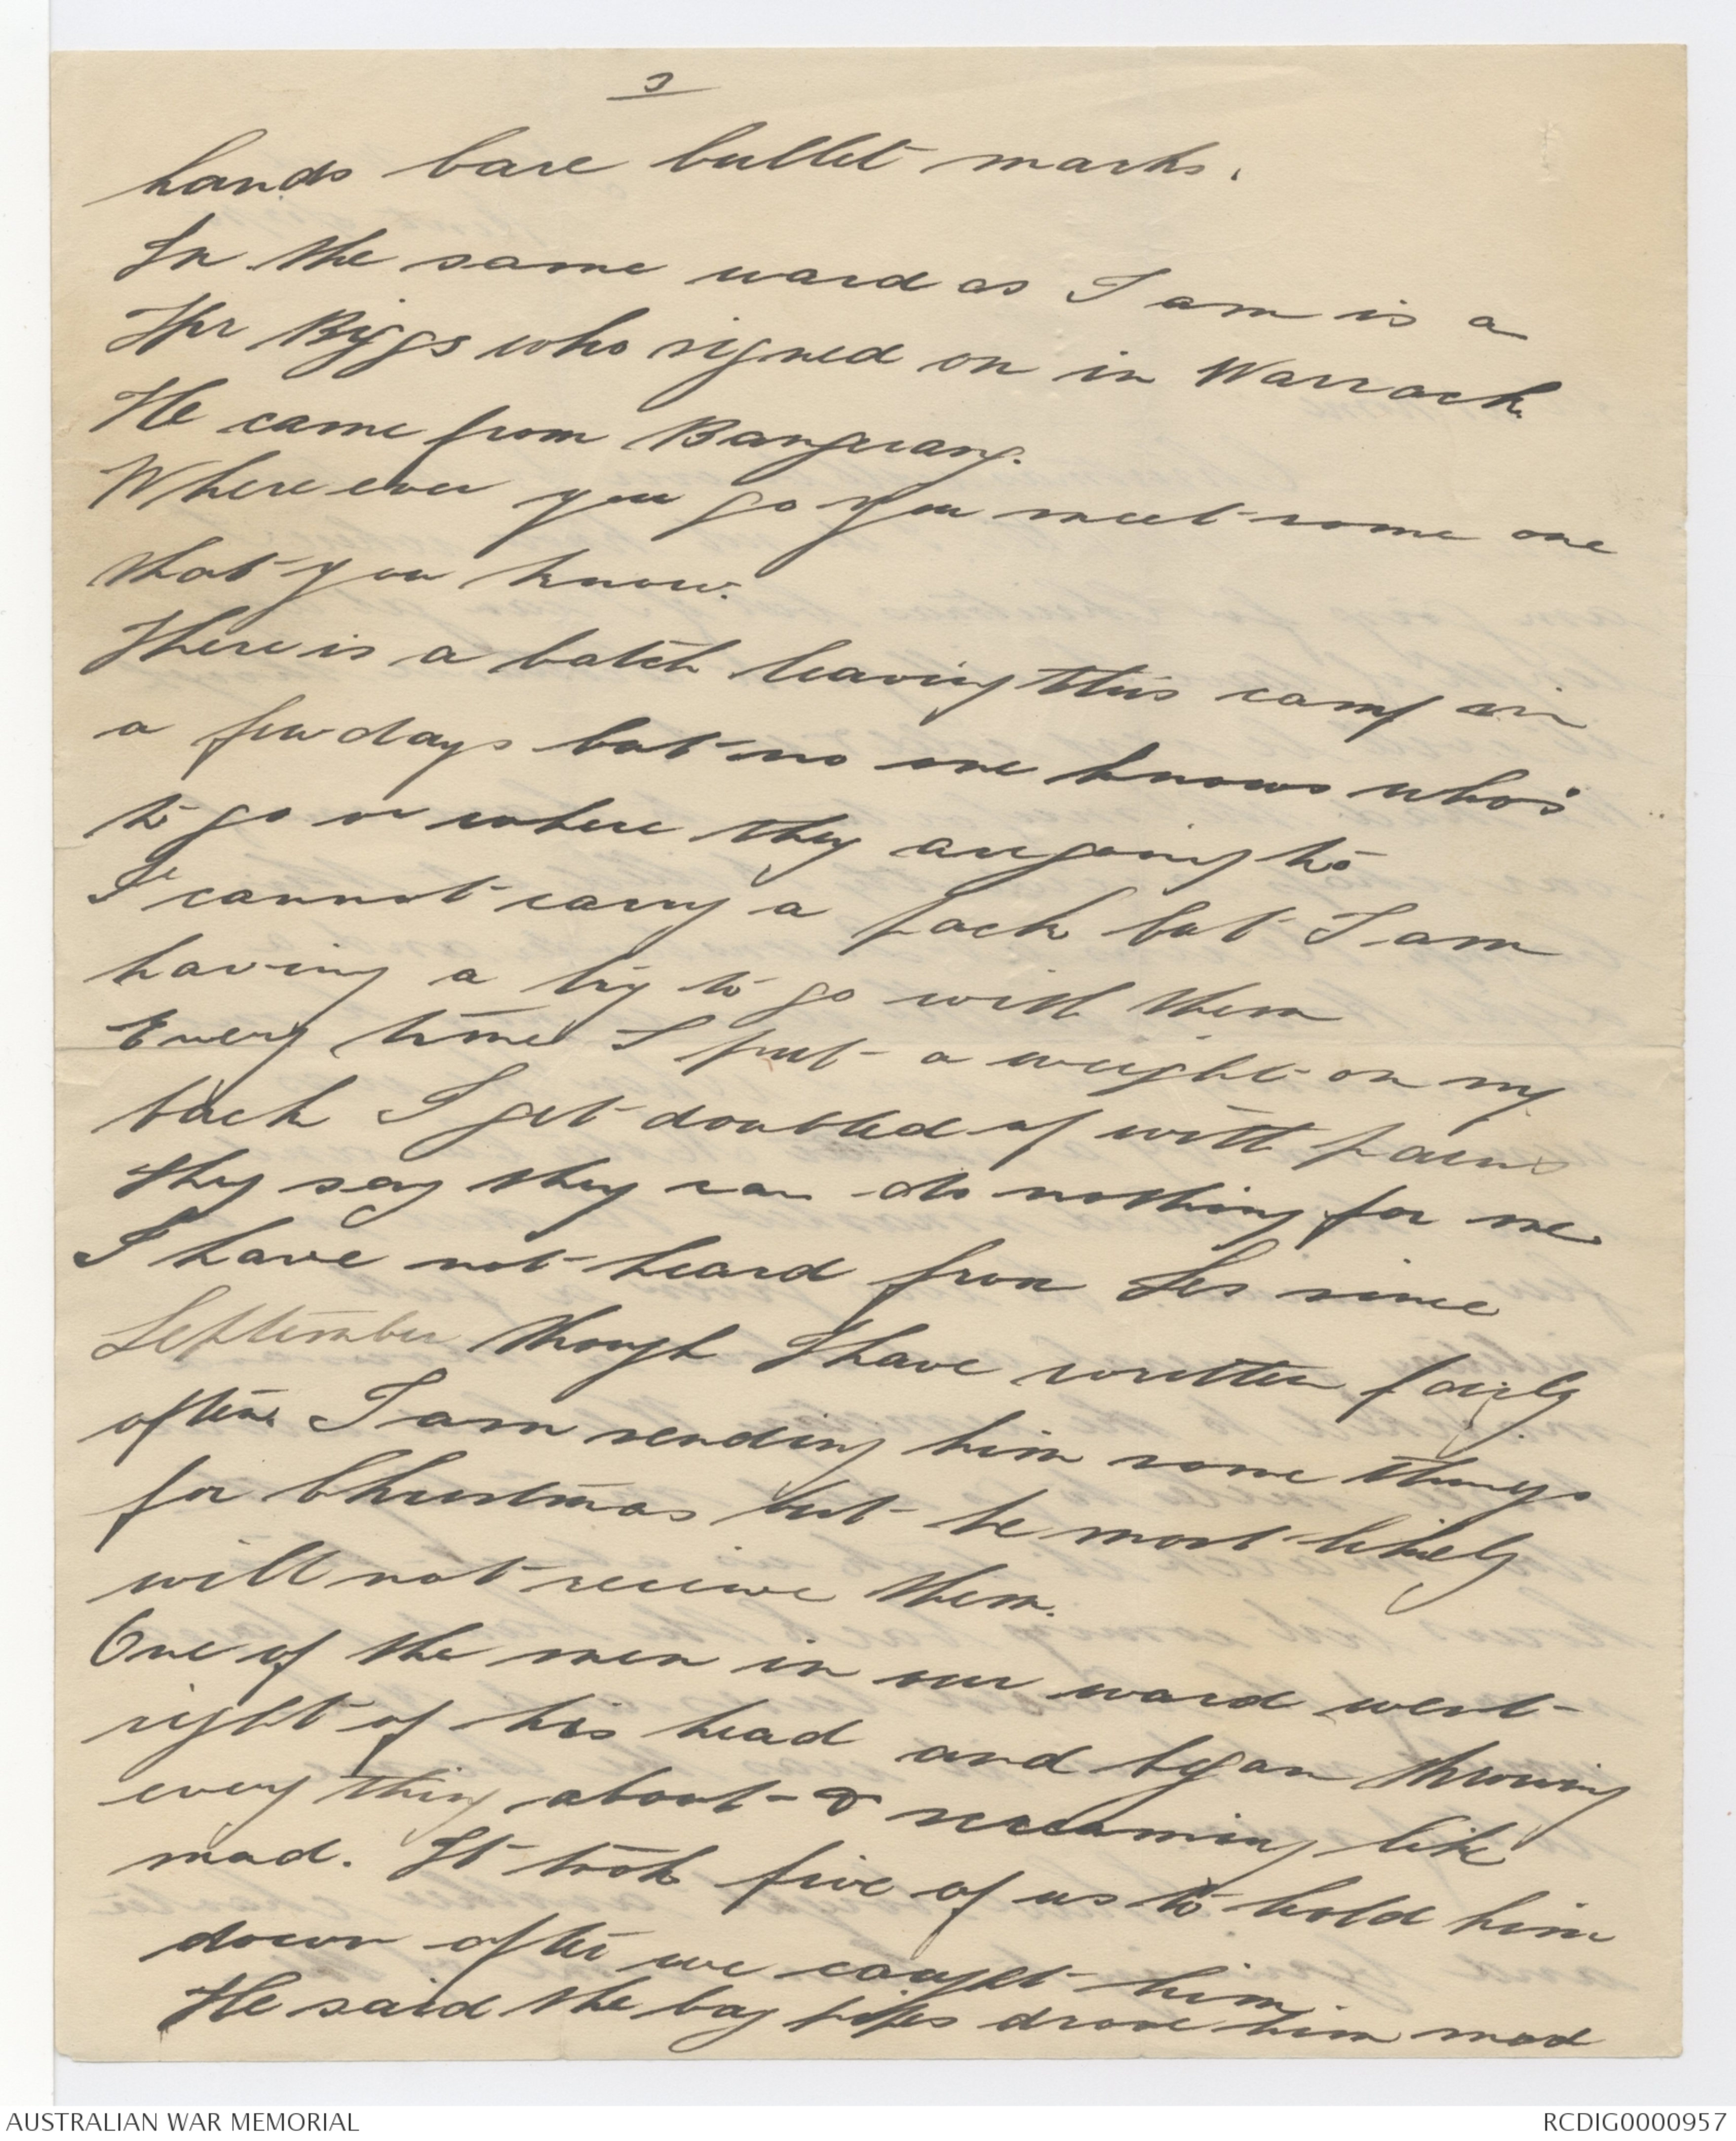 3
hands bare bullet marks.
In the same ward as I am is a
Tpr Biggs who signed on in Warrack.
He came from Bangerang.
Where ever you go you meet some one
that you know.
There is a batch leaving this camp in
a few days but no one knows who's
to go or where they are going to
I cannot carry a pack but I am
having a try to go with them
Every time I put a weight on my
back I get doubled up with pains
They say they can do nothing for me.
I have not heard from Les since
September though I have written fairly
often. I am sending him some things
for Christmas but he most likely
will not recieve them.
One of the men in our ward went
right of his head and began throwing
every thing about & screaming like
mad. It took five of us to hold him
down after we caught him.
He said the bag pipes drove him mad
AUSTRALIAN WAR MEMORIAL
RCDIG0000957